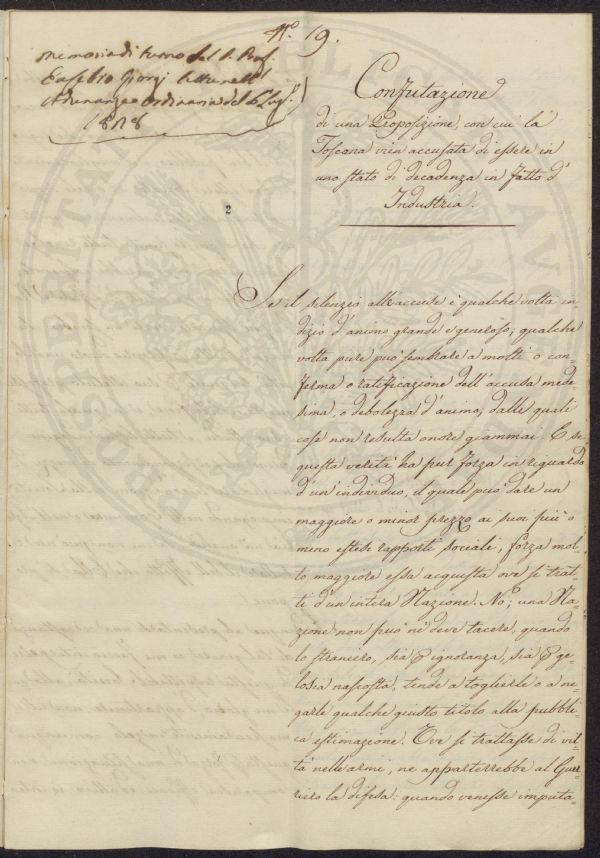 N.º 19.
Memoria di turno del S. Prof.
Eusebio Giorgi letta nell'
Adunanza ordinaria del 5 Lug.º
1818
2
Confutazione
di una Proposizione, con cui la
Toscana vien accusata di essere in
uno stato di decadenza in fatto d'
Industria.
Se il silenzio alle accuse è qualche volta in-
dizio d'animo grande e generoso; qualche
volta pure può sembrare a molti o con-
ferma o ratificazione dell'accusa mede-
sima, o debolezza d'animo; dalle quali
cose non resulta onore giammai. E se
questa verità ha pur forza in riguardo
d'un individuo, il quale può dare un
maggiore o minor prezzo ai suoi più o
meno estesi rapporti sociali, forza mol-
to maggiore essa acquista ove si trat-
ti d'un intera Nazione. Nò; una Na-
zione non può nè deve tacere, quando
lo straniero, sia p ignoranza, sia p ge-
losia nascosta, tende a toglierle o a ne-
garle qualche giusto titolo alla pubbli-
ca estimazione. Ove si trattasse di vil-
tà nell'armi, ne apparterrebbe al Guer-
riero la difesa: quando venisse imputa-